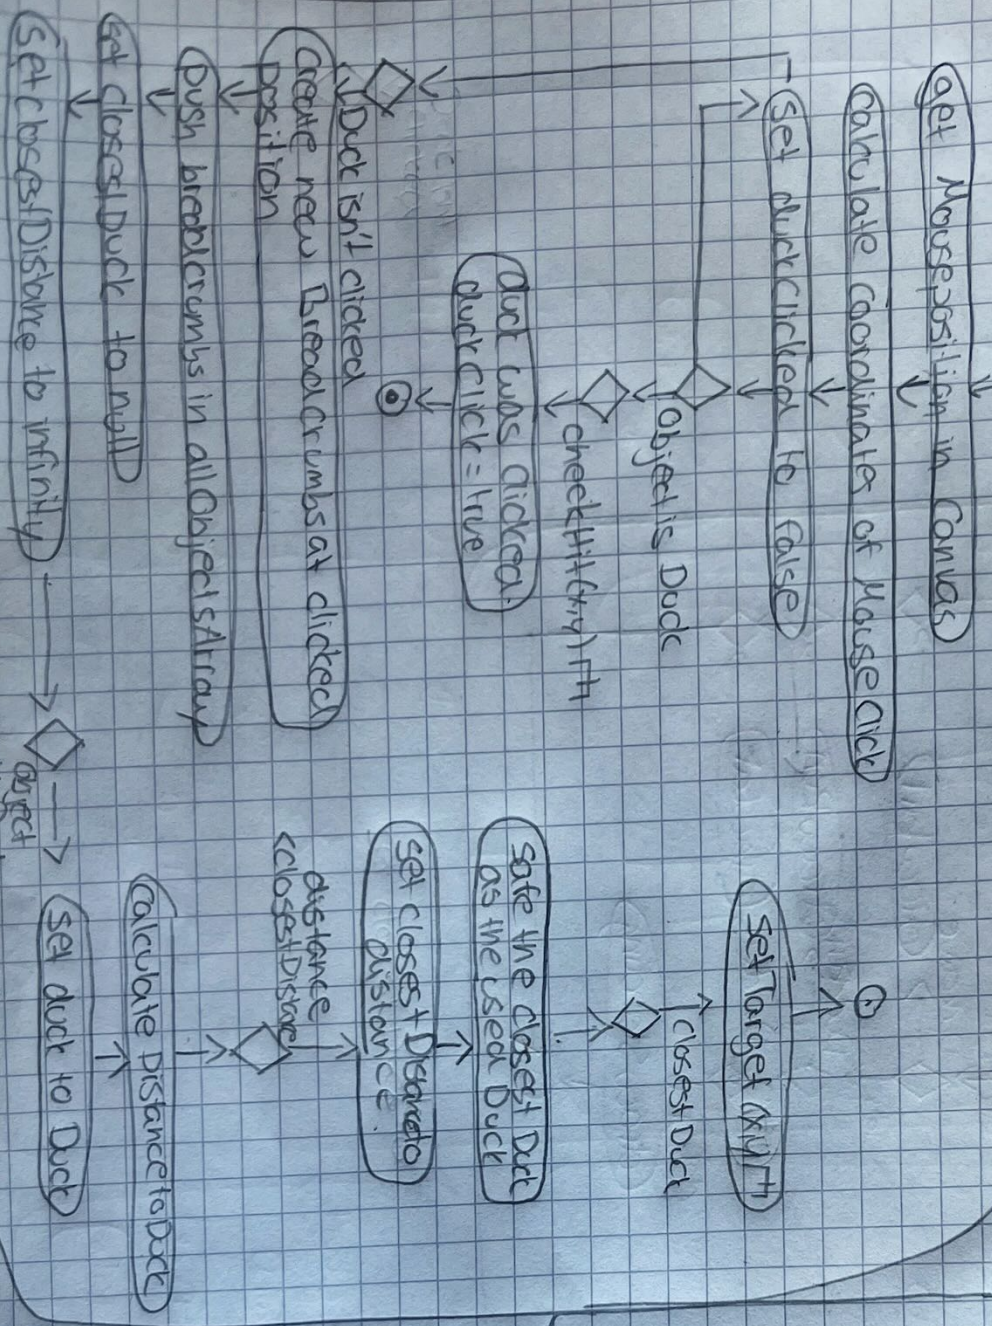 get Mouseposition in Canvas
Calculate Coordinates of Mouseclick
Set duckClicked to false
Object is Duck
checkHit(x,y)
duck was clicked.
duckClick = true
Duck isn't clicked
Create new Breadcrumbs at clicked
position
Push breadcrumbs in allObjectsArray
set closestDuck to null
Set closestDistance to infinity
object
set duck to Duck
Calculate Distance to Duck
distance
<closestDistance
set closestDistance to
distance
Safe the closest Duck
as the used Duck
closestDuck
setTarget(x,y)